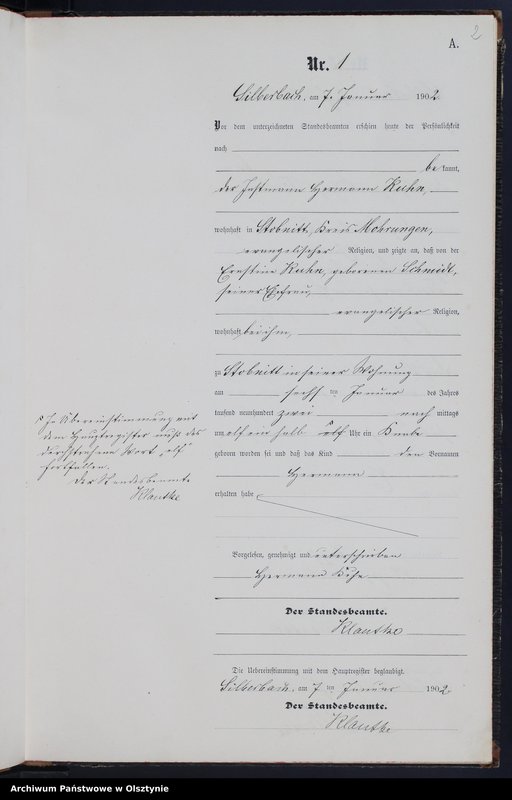 2
A.
Nr. 1
Silberbach, am 7. Januar 1902
Vor dem unterzeichneten Standesbeamten erschien heute der Persönlichkeit
nach
bekannt,
der Instmann Hermann Kuhn,
wohnhaft in Stobnitt, Kreis Mohrungen,
evangelischer Religion, und zeigte an, daß von der
Ernstine Kuhn, geborenen Schmidt,
seiner Ehefrau,
evangelischer Religion,
wohnhaft bei ihm,
zu Stobnitt in seiner Wohnung
am sechsten Januar des Jahres
tausend neunhundert zwei nach mittags
um elf ein halb elf Uhr ein Knabe
geboren worden sei und daß das Kind den Vornamen
Hermann
erhalten habe
In Übereinstimmung mit
dem Hauptregister muß das
Wort „elf“
fortfallen.
Der Standesbeamte
Klautke
Vorgelesen, genehmigt und unterschrieben
Hermann
Der Standesbeamte.
Klautke
Die Uebereinstimmung mit dem Hauptregister beglaubigt.
Silberbach, am 7ten Januar 1902
Der Standesbeamte.
Klautke
Archiwum Państwowe w Olsztynie